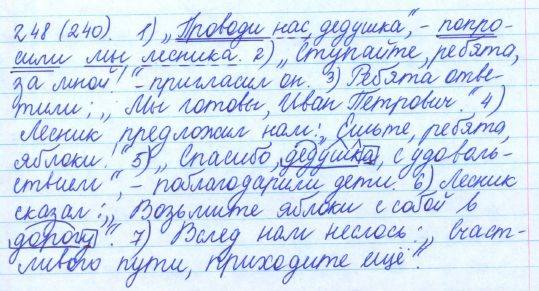 248 (240). 1) „Проводи нас, дедушка“, – попро-
сили мы лесника. 2) „Ступайте, ребята,
за мной!“ – пригласил он. 3) Ребята отве-
тили: „Мы готовы, Иван Петрович.“ 4)
Лесник предложил нам: „Ешьте, ребята,
яблоки!“ 5) „Спасибо, дедушка, с удоволь-
ствием“, – поблагодарили дети. 6) Лесник
сказал: „Возьмите яблоки с собой в
дорогу“. 7) Вслед нам неслось: „Счаст-
ливого пути, приходите ещё“.